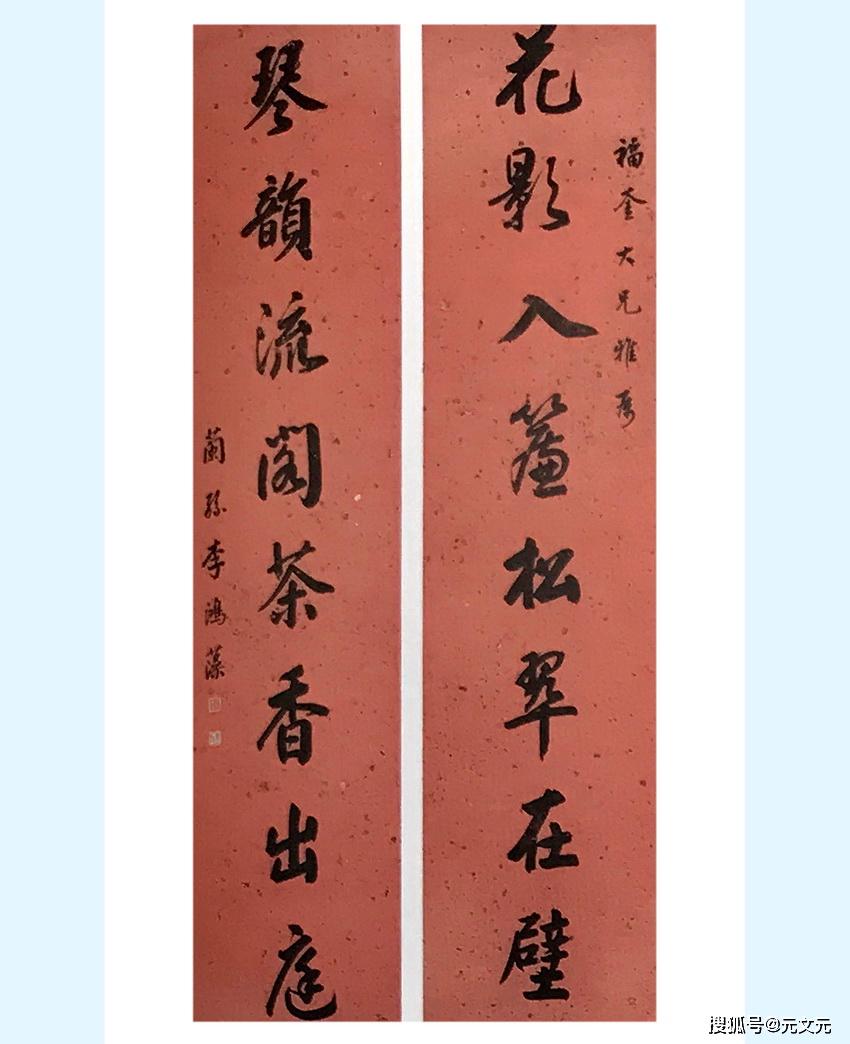 福奎大兄雅属
花影入簾松翠在壁
琴韻流閣茶香出庭
蘭孫李鴻藻
搜狐号@元文元